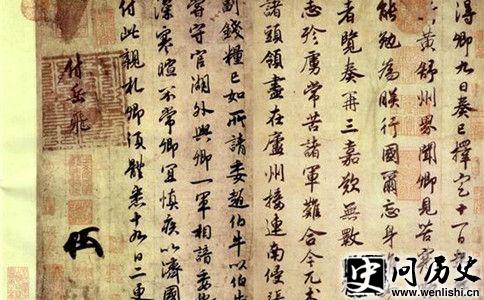 得卿九日奏已擇定十一日
黃舒州界聞卿見苦寒
能勉為朕行國爾忘身
者覽奏再三嘉歎無斁
志殄虜常苦諸軍難合今兀
諸頭領盡在廬州接連南侵張
副錢糧已如所請委趙伯牛以伯牛
嘗守官湖外與卿一軍相諳委
深寒暄不常卿宜慎疾以濟國
付此親札卿須體悉十九日二更
付岳飛
史问历史
www.wenlishi.cn